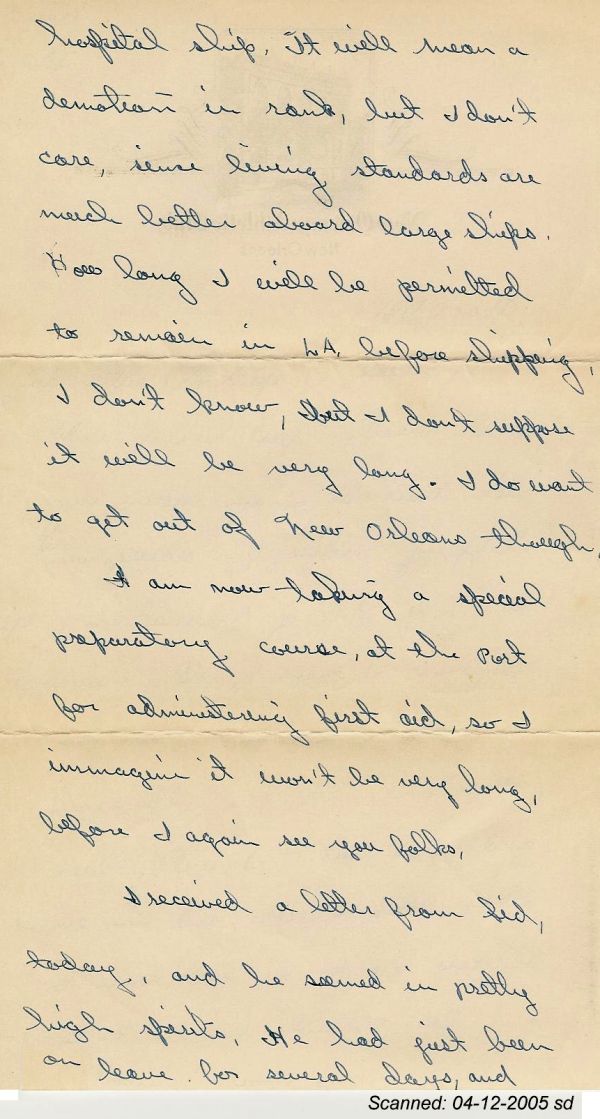 hospital ship. It will mean a
demotion in rank, but I don't
care, sense living standards are
much better aboard large ships.
How long I will be permitted
to remain in LA. before shipping,
I don't know, but I don't suppose
it will be very long. I do want
to get out of New Orleans though,
I am now taking a special
preparatory course, at the Port
for administering first aid, so I
immagine it won't be very long,
before I again see you folks.
I received a letter from Sid,
today, and he seemed in pretty
high spirits. He had just been
on leave for several days, and
Scanned: 04-12-2005 sd